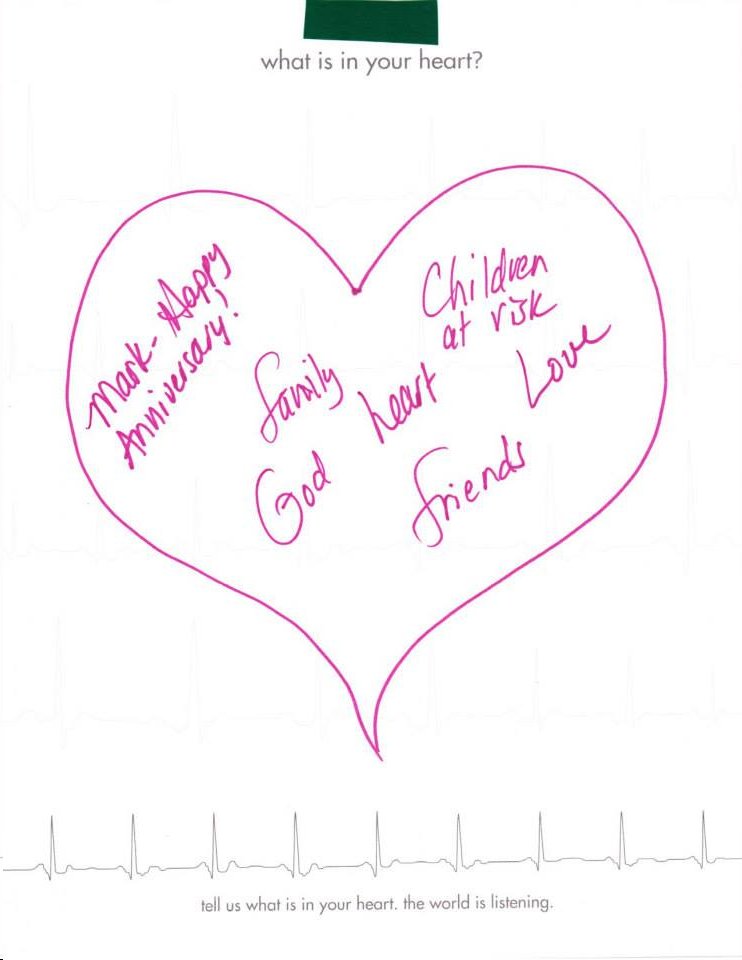 what is in your heart?
Mark - Happy
Anniversary!
Children
at risk
family
heart
Love
God
friends
tell us what is in your heart. the world is listening.